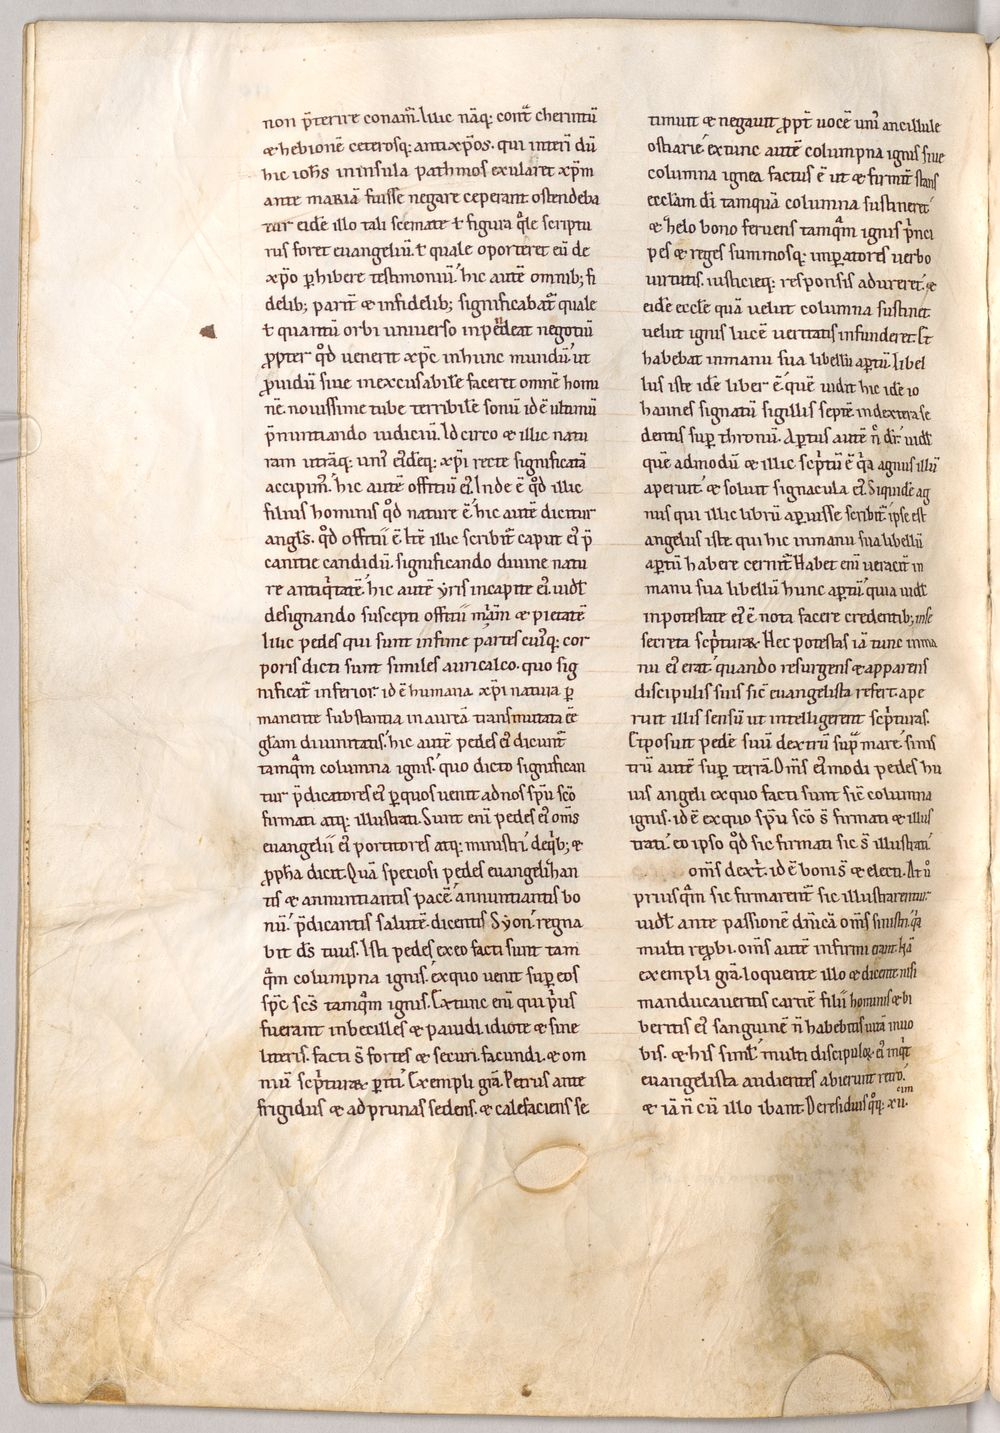 non p̄terire conam᷑. Illic nāq; cont᷑ cherintū
⁊ hebionē ceterosq; antixp̄os. qui interī dū
hic ioh̄s in insula pathmos exularet xp̄m
ante mariā fuisse negare ceperant. ostendeba
tur eidē illo tali scemate ł figura q̄le scriptu
rus foret euangeliū. ł quale oporteret eū de
xp̄o ꝑhibere testimoniū. hic autē omnib; fi
delib; parit᷑ ⁊ infidelib; significabat᷑ quale
ł quantū orbi uniuerso inpēdeat negotiū
ꝓpter qd̄ uenerit xp̄c in hunc mundū. ut
ꝓuidū siue inexcusabilē faceret omnē homi
nē. nouissime tube terribilē sonū id ē ultimū
p̄nuntiando iudiciū. Idcirco ⁊ illic natu
ram utrāq; uni᷒ eidēq; xp̄i recte significatā
accipim᷒. hic autē offitiū ei᷒. Inde ē qd̄ illic
filius hominis qd̄ nature ē. hic autē dicitur
angl̄s. qd̄ offitii ē. Itē illic scribit᷑ caput ei᷒ p̄
canitie candidū. significando diuine natu
re antiq̇tatē. hic autē yris in capite ei᷒. uidł
designando suscepti offitii m̄am ⁊ pietatē
Illic pedes qui sunt infime partes cui᷒q; cor
poris dicti sunt similes auricalco. quo sig
nificat᷑ inferior. id ē humana xp̄i natura ꝑ
manente substantia in aureā transmutata eē
głam diuinitatis. hic autē pedes ei᷒ dicunt᷑
tamq̄m columna ignis. quo dicto significan
tur p̄dicatores ei᷒ ꝑ quos uenit ad nos sp̄u sc̄o
firmati atq; illustrati. Sunt enī pedes ei᷒ om̄s
euangelii ei᷒ portitores atq; ministri. de q̇b; ⁊
ꝓph̄a dicit. Quā speciosi pedes euangelizan
tis ⁊ annuntiantis pacē. annuntiantis bo
nū. p̄dicantis salutē. dicentis Syon. regna
bit ds̄ tuus. Isti pedes ex eo facti sunt tam
q̄m columpna ignis. ex quo uenit suꝑ eos
sp̄c sc̄s tamq̄m ignis. Ex tunc enī qui ṗus
fuerant inbecilles ⁊ pauidi. idiote ⁊ sine
literis. facti s̄ fortes ⁊ securi. facundi. ⁊ om
niū scṗturaꝝ ꝑiti. Exempli gr̄a. Petrus ante
frigidus ⁊ ad prunas sedens. ⁊ calefaciens se
timuit ⁊ negauit ꝓpt᷑ uocē uni᷒ ancillule
ostiarie. ex tunc autē columpna ignis siue
columna ignea factus ē ut ⁊ firmit᷑ stans
eccłam di᷒ tamquā columna sustineret.
⁊ zelo bono feruens tamq̄m ignis ṗnci
pes ⁊ reges summosq; imꝑatores uerbo
uirtutis. iusticieq; responsis adureret. ⁊
eidē eccłe quā uelut columna sustinet
uelut ignis lucē ueritatis infunderet. Et
habebat in manu sua libellū aꝑtū. Libel
lus iste idē liber ē. quē uidit hic idē io
hannes signatū sigillis septē in dextera se
dentis suꝑ thronū. Aꝑtus autē n̄ dr̄. uidł
quē admodū ⁊ illic scṗtū ē q̇a agnus illū
aperuit. ⁊ soluit signacula ei᷒. Siquidē ag
nus qui illic librū aꝑuisse scribit᷑. ipse est
angelus iste qui hic in manu sua libellū
aꝑtū habere cernit᷑. Habet enī ueracit᷑ in
manu sua libellū hunc aꝑtū. quia uidł
in potestate ei᷒ ē nota facere credentib; ni̅se
secreta scṗturaꝝ. Hec potestas iā tunc in ma
nu ei᷒ erat. quando resurgens ⁊ apparens
discipulis suis sic̄ euangelista refert. ape
ruit illis sensū ut intelligerent scṗturas.
Et posuit pedē suū dextrū sup᷑ mare. sinis
trū autē suꝑ terrā. Om̄s ei᷒modi pedes hu
ius angeli ex quo facti sunt sic̄ columna
ignis. id ē ex quo sp̄u sc̄o s̄ firmati ⁊ illus
trati. eo ipso qd̄ sic firmati sic s̄ illustrati.
om̄s dext᷑. id ē boni s̄ ⁊ electi. At u̇
priusq̄m sic firmarent᷑ sic illustrarentur.
uidł ante passionē dn̄icā om̄s sinistri. q̇a
multi reꝓbi. om̄s autē infirmi erant. Nā
exempli gr̄a. loquente illo ⁊ dicente. nisi
manducaueritis carnē filii hominis ⁊ bi
beritis ei᷒ sanguinē n̄ habebitis uitā in uo
bis. ⁊ his simił. multi discipuloꝝ. ei᷒ inq̇t
euangelista audientes abierunt retro.
⁊ iā n̄ cū illo ibant. De residuis q̊q; xii.cim